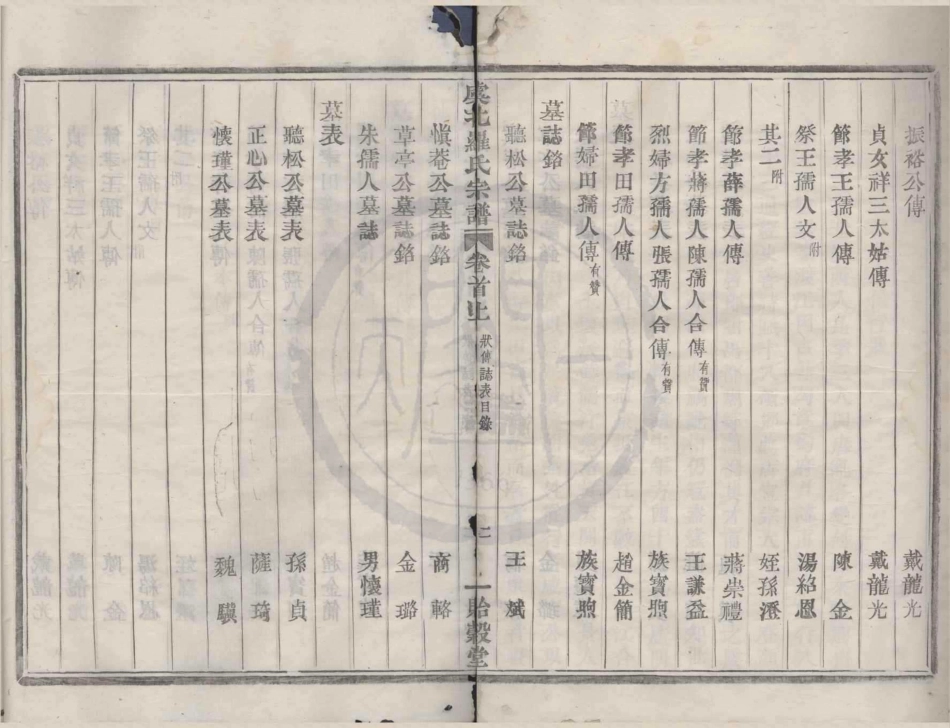 振裕公傳 戴龍光
貞女祥三太姑傳 戴龍光
節孝王孺人傳 陳金
祭王孺人文附 湯紹恩
其二附 姪孫澄
節孝薛孺人傳 蔣崇禮
節孝蔣孺人陳孺人合傳有贊 王謙益
烈婦方孺人張孺人合傳有贊 族寶煦
節孝田孺人傳 趙金簡
節婦田孺人傳有贊 族寶煦
墓誌銘
聽松公墓誌銘 王斌
虞北羅氏宗譜 卷首上 狀傳誌表目錄 二 貽穀堂
愼菴公墓誌銘 商輅
草亭公墓誌銘 金璐
朱孺人墓誌 男懷瑾
墓表
聽松公墓表 孫貞
正心公墓表 薩琦
懷瑾公墓表 魏驥